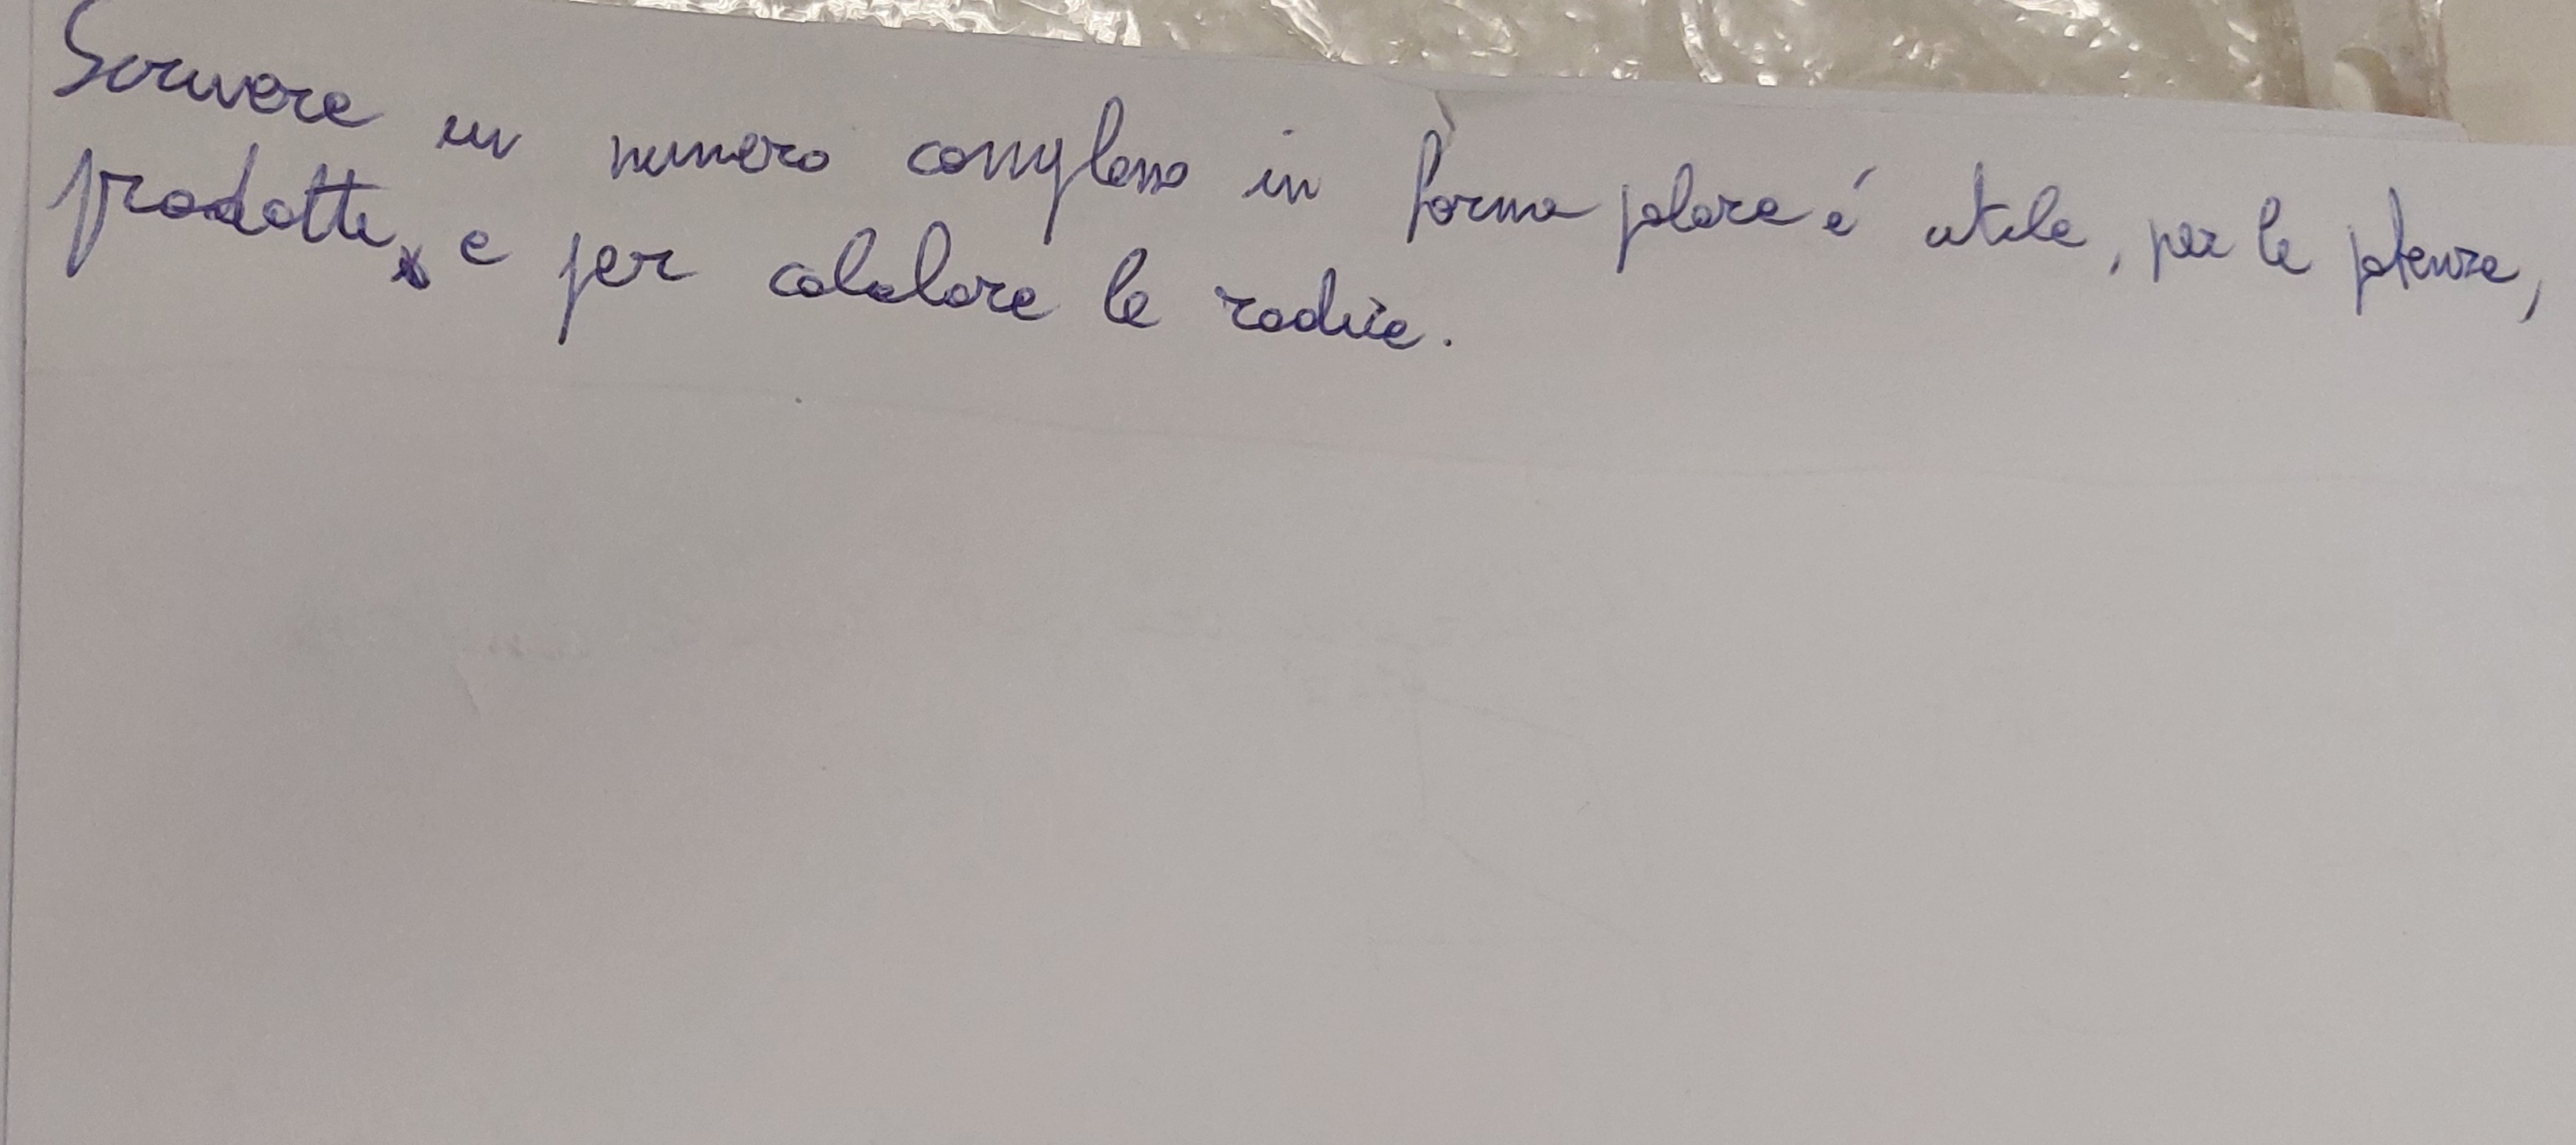 Scrivere un numero complesso in forma polare é utile, per le potenze,
prodotti, e per calcolare le radici.